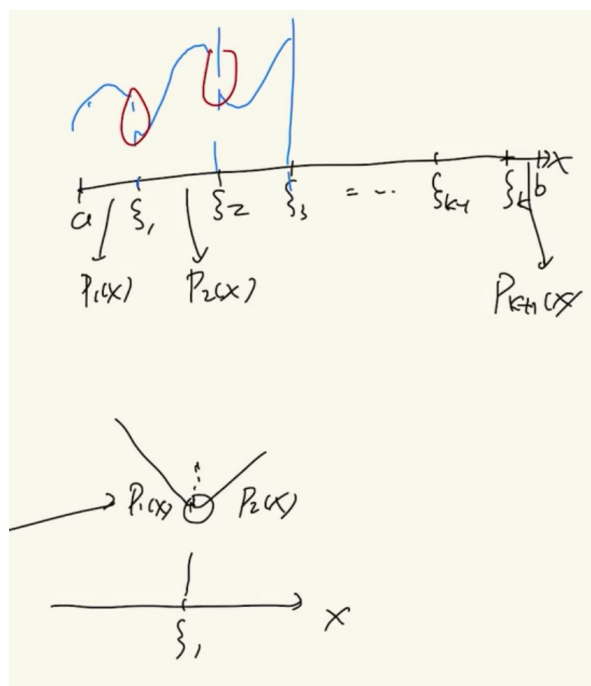 a ξ₁ ξ₂ ξ₃ = -.. ξₖ₋₁ ξₖ b x
P₁(x) P₂(x) Pₖ₊₁(x)
P₁(x) P₂(x)
x
ξ₁